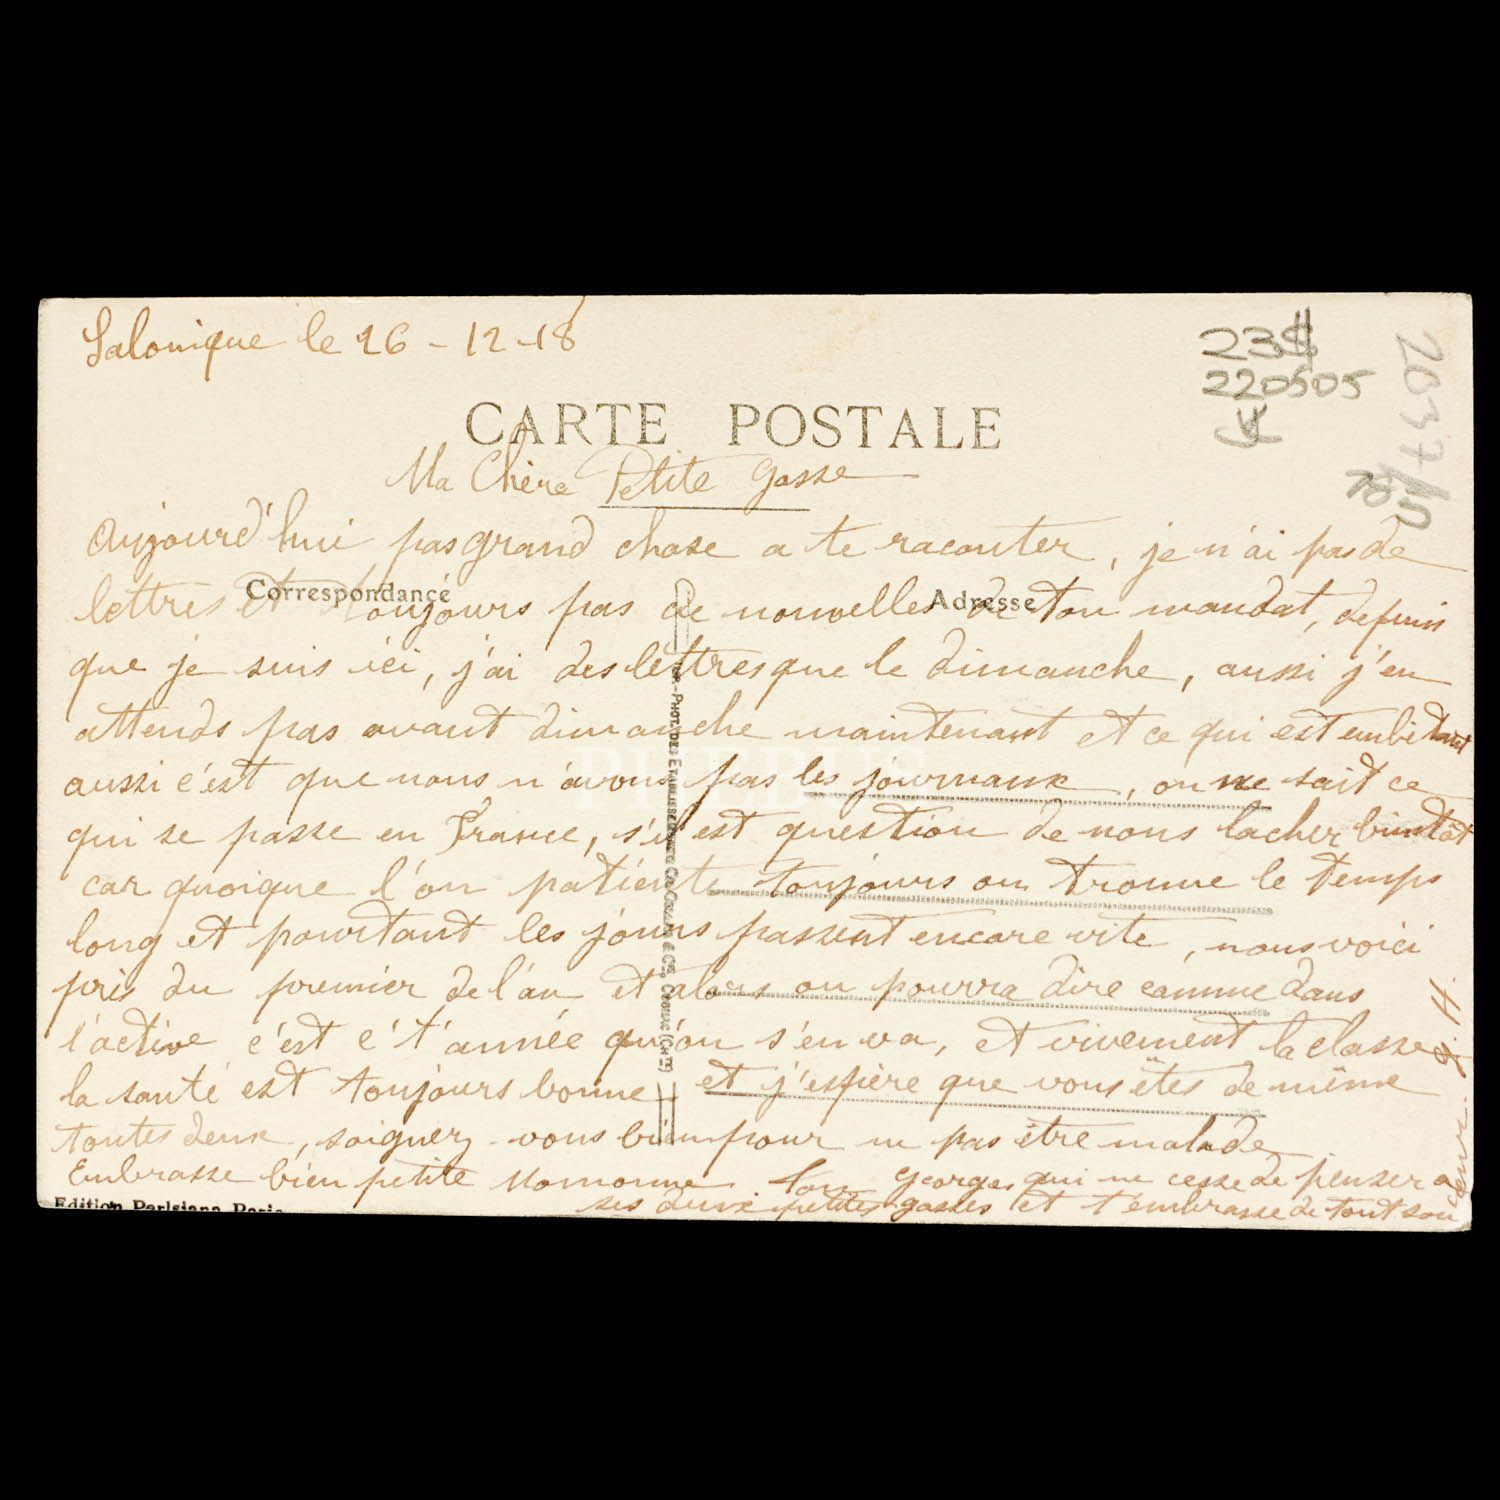 Salonique le 26-12-18
CARTE POSTALE
Ma Chère Petite gosse
Aujourd'hui pas grand chose a te raconter, je n'ai pas de
lettres et toujours pas de nouvelles de ton mandat, depuis
Correspondance
Adresse
que je suis ici, j'ai des lettres que le dimanche, aussi j'en
attends pas avant dimanche maintenant et ce qui est embêtant
aussi c'est que nous n'avons pas les journaux, on ne sait ce
qui se passe en France, s'il est question de nous lacher bientôt
car quoique l'on patiente toujours on trouve le temps
long et pourtant les jours passent encore vite, nous voici
près du premier de l'an et alors on pourra dire comme dans
l'active c'est c't'année qu'on s'en va, et vivement la classe
la santé est toujours bonne et j'espère que vous êtes de même
toutes deux, soignez-vous bien pour ne pas être malade
Embrasse bien petite Momonne Ton Georges qui ne cesse de penser a
ses deux petites gosses et t'embrasse de tout son
coeur. G. H.
Edition Parisiana Paris
PHEBUS
23$
220505
2037